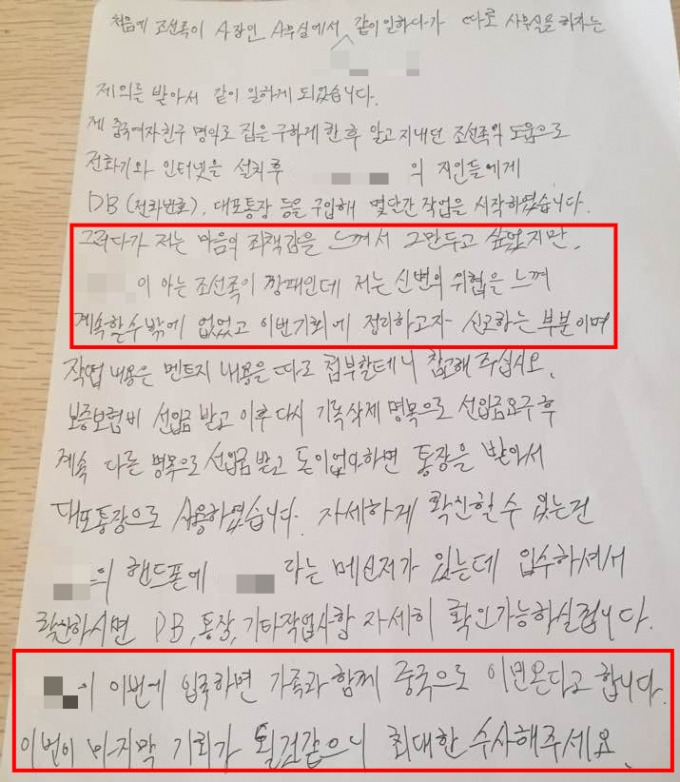 처음에 조선족이 사장인 사무실에서 같이 일하다가 따로 사무실을 하자는
제의를 받아서 같이 일하게 되었습니다.
제 중국여자친구 명의로 집을 구하게 한 후 알고 지내던 조선족의 도움으로
전화기와 인터넷을 설치후 의 지인들에게
DB (전화번호), 대포통장 등을 구입해 몇달간 작업을 시작하였습니다.
그러다가 저는 마음의 죄책감을 느껴서 그만두고 싶었지만,
이 아는 조선족이 깡패인데 저는 신변의 위협을 느껴
계속할수밖에 없었고 이번기회에 정리하고자 신고하는 부분이며
작업 내용은 멘트지 내용을 따로 첨부할테니 참고해 주십시오.
보증보험비 선입금 받고 이후 다시 기록삭제 명목으로 선입금요구 후
계속 다른 명목으로 선입금 받고 돈이없다하면 통장을 받아서
대포통장으로 사용하였습니다. 자세하게 확신할 수 있는건
의 핸드폰에 라는 메신저가 있는데 입수하셔서
확산하시면 DB, 통장, 기타작업사항 자세히 확인가능하실겁니다.
이 이번에 입국하면 가족과 함께 중국으로 이민온다고 합니다.
이번이 마지막 기회가 될것같으니 최대한 수사해주세요.